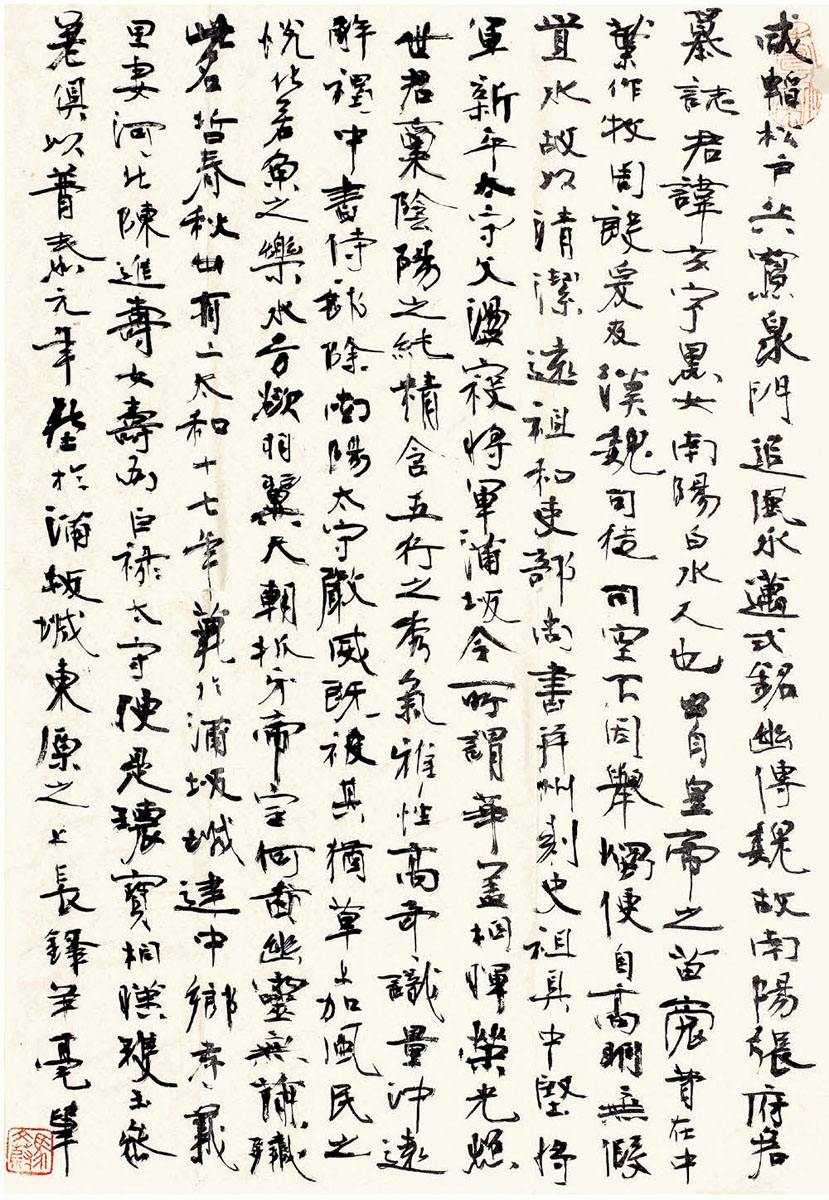 咸韜松戶共寬泉門追風永邁式銘幽傳魏故南陽張府君
墓誌君諱玄字黑女南陽白水人也出自皇帝之苗裔昔在中
葉作牧周殷爰及漢魏司徒司空不因舉燭便自高明無假
置水故以清潔遠祖和吏部尚書并州刺史祖具中堅將
軍新平太守父盪寇將軍蒲坂令所謂華蓋相暉榮光照
世君稟陰陽之純精含五行之秀氣雅性高奇識量沖遠
解褐中書侍郎除南陽太守嚴威既被其猶草上加風民之
悅化若魚之樂水方欲羽翼天朝抓牙帝室何啚幽靈無簡殲
此名哲春秋卅有二太和十七年薨於蒲坂城建中鄉孝義
里妻河北陳進壽女壽為巨祿太守便是瓌寶相暎瓊玉參
差俱以普泰元年葬於蒲坂城東原之上長鋒羊毫筆